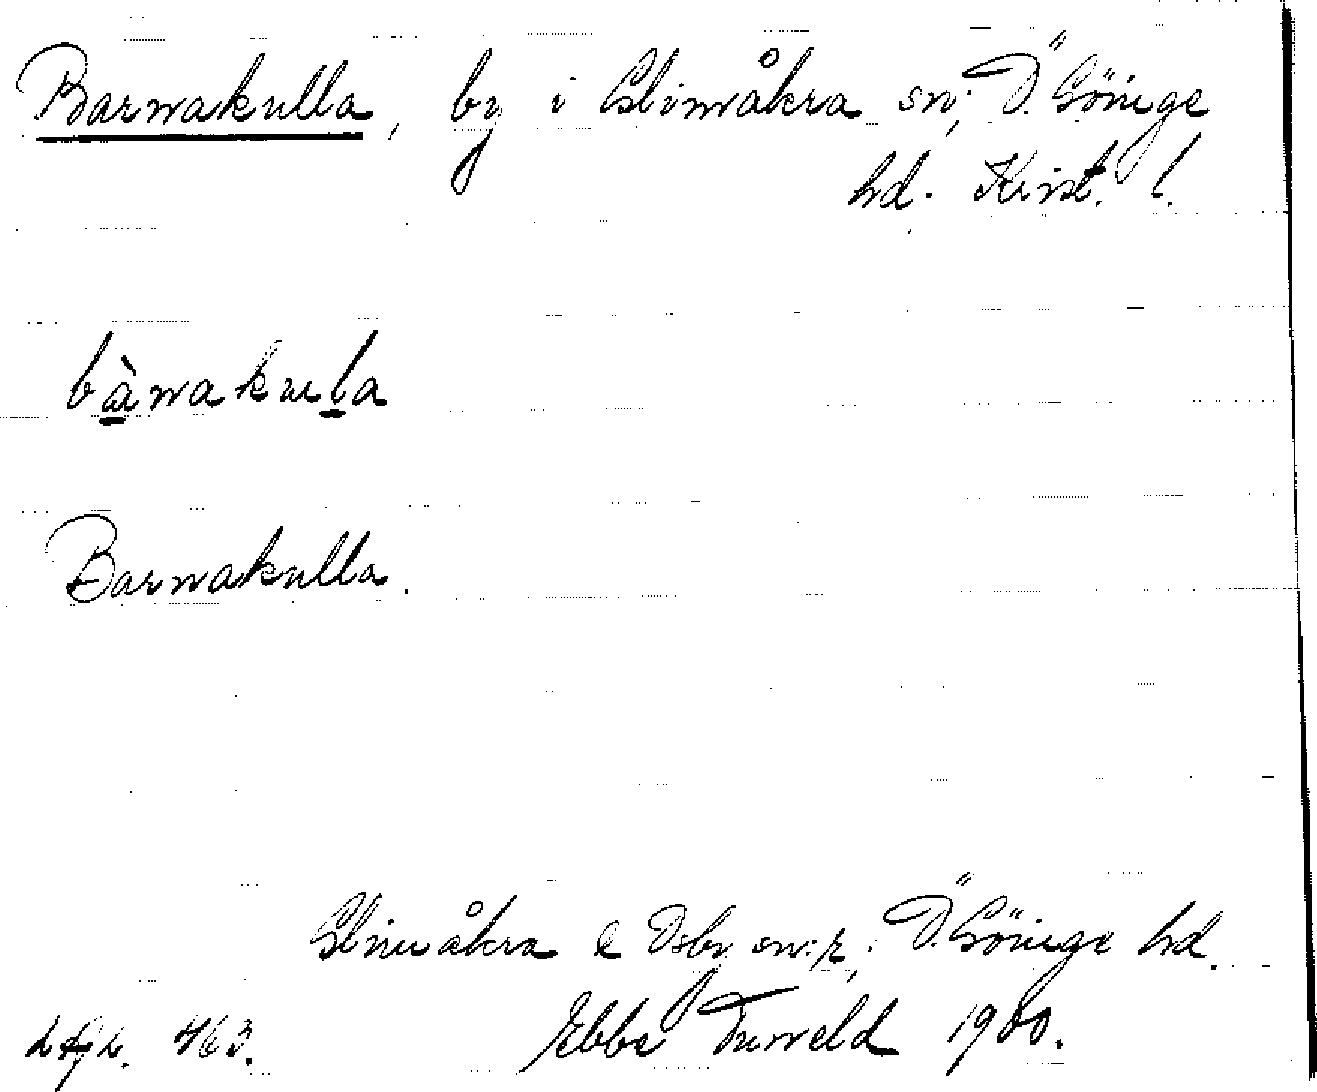 Barnakulla, by i Glimåkra sn, Ö. Göinge
hd. Krist. l.
bànakula
Barnakulla.
Glimåkra & Osby sn:r, Ö. Göinge hd.
463. Ebbe Tuneld 1900.